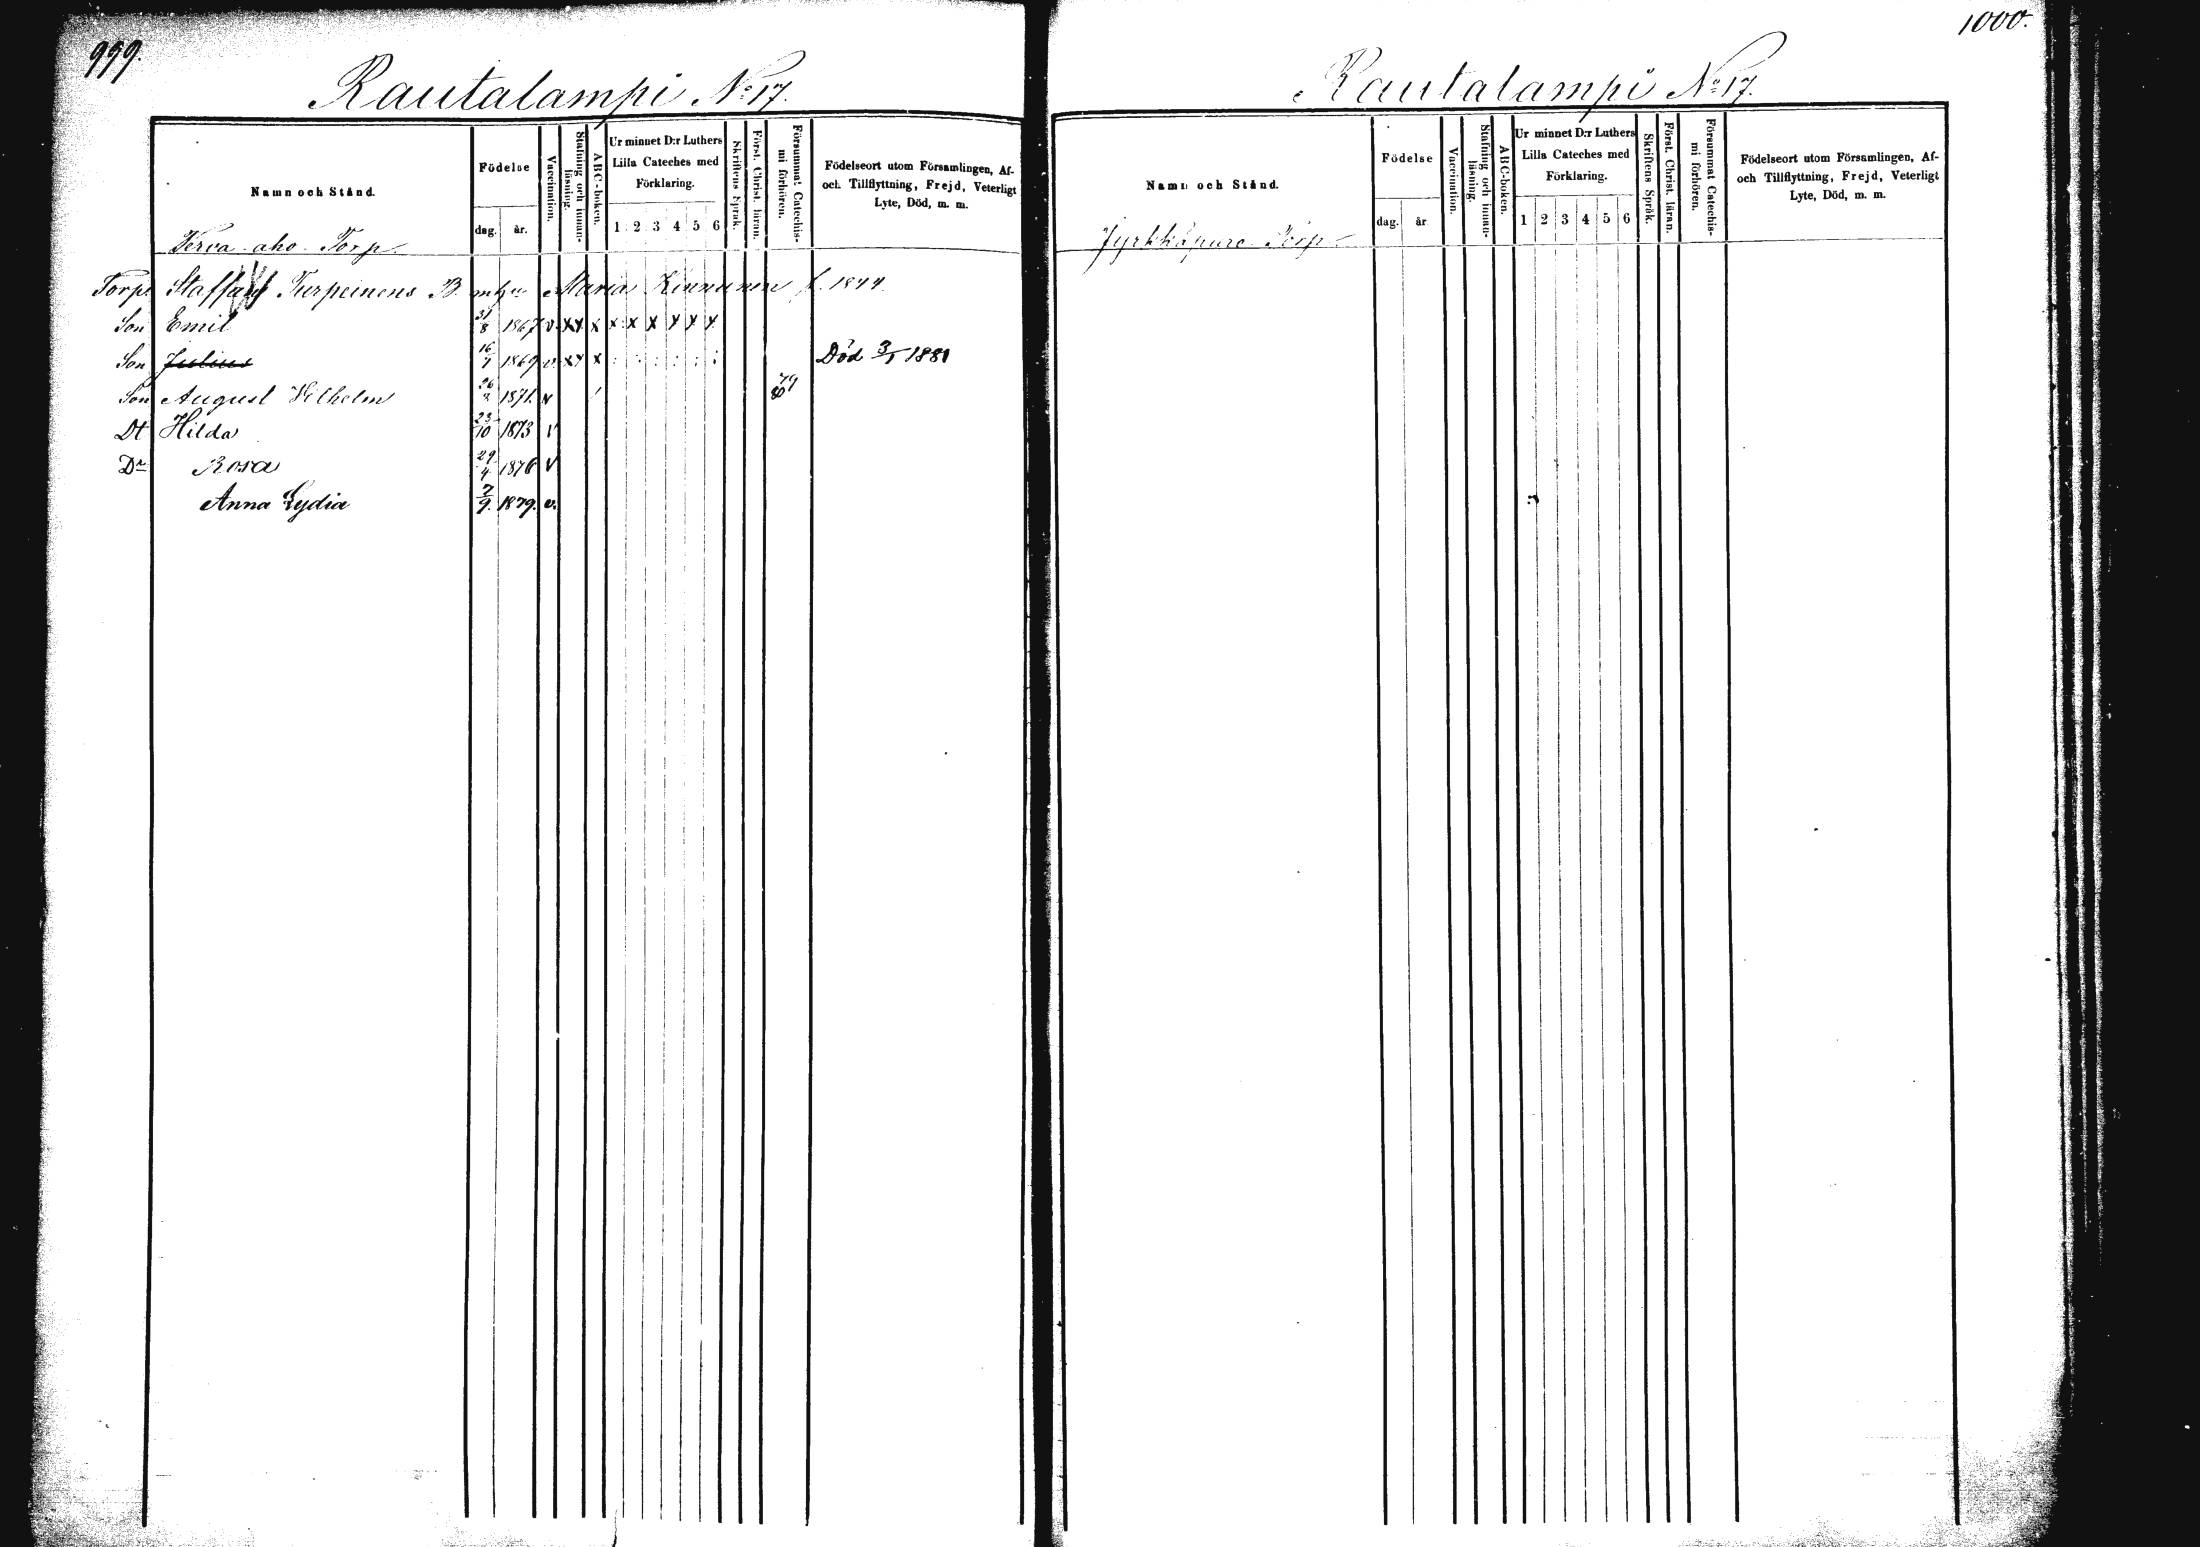 999.
Rautalampi No 17.
Namn och Stånd.
Födelse
dag. år.
Vaccination.
Stafning och innan-läsning.
ABC-boken.
Ur minnet D:r Luthers
Lilla Cateches med
Förklaring.
1 2 3 4 5 6
Skriftens Språk.
Först. Christ. läran.
Försummat Catechis-mi förhören.
Födelseort utom Församlingen, Af-
och Tillflyttning, Frejd, Veterligt
Lyte, Död, m. m.
Verva-aho Torp
Torp. Staffan Turpeinens B. m hu Maria Kinnunen f. 1844
Son Emil 31/8 1867 v. xx x x x x x x x
Son Julius 16/7 1869 v. xx x Död 3/1 1881
Son August Vilhelm 26/2 1871 v 79
Dt Hilda 23/10 1873 V
Dr Rosa 29/4 1876 V
Anna Lydia 7/9. 1879. v.
1000.
Rautalampi No 17.
Namn och Stånd.
Födelse
dag. år
Vaccination.
Stafning och innan-läsning.
ABC-boken.
Ur minnet D:r Luthers
Lilla Cateches med
Förklaring.
1 2 3 4 5 6
Skriftens Språk.
Först. Christ. läran.
Försummat Catechis-mi förhören.
Födelseort utom Församlingen, Af-
och Tillflyttning, Frejd, Veterligt
Lyte, Död, m. m.
Jyrkkäpuro Torp